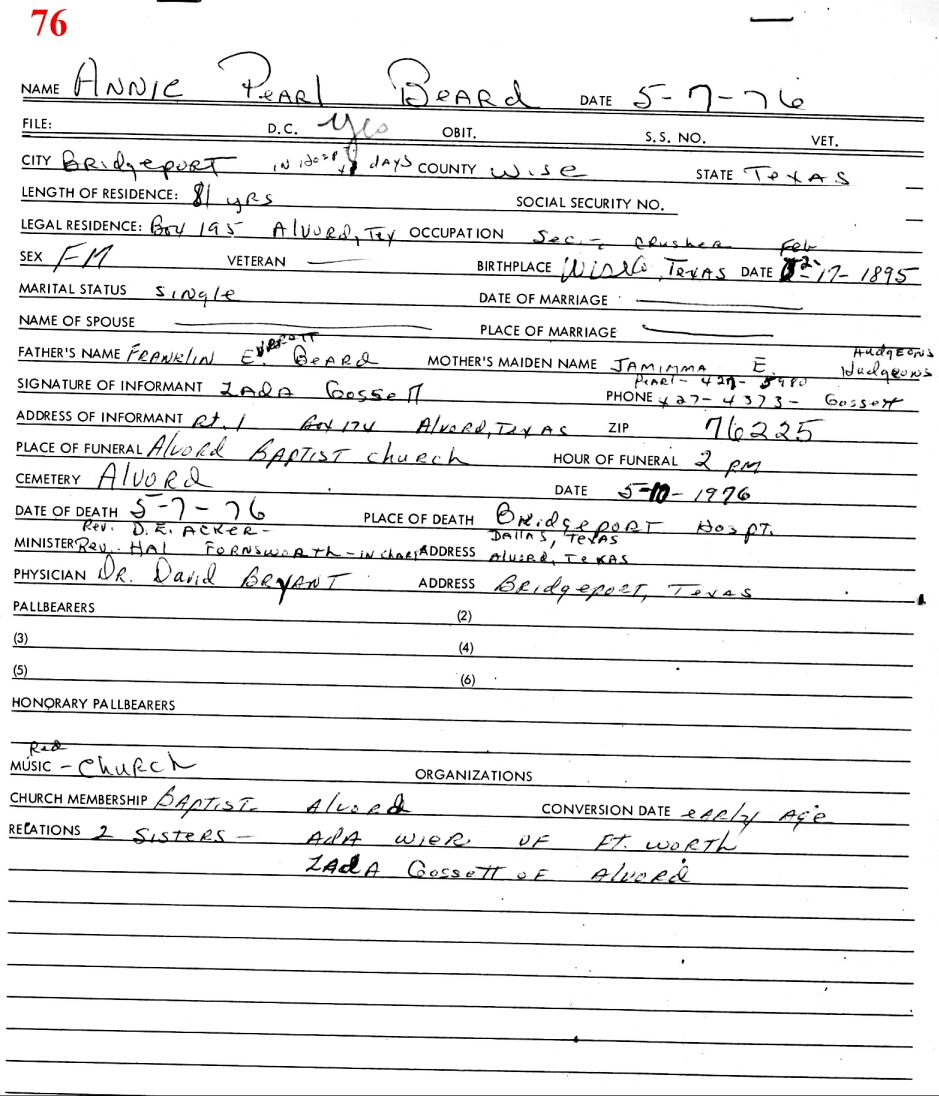 76
NAME ANNIE PEARL BEARD DATE 5-7-76
FILE: D.C. Yes OBIT. S.S. NO. VET.
CITY BRIDGEPORT IN HOSPT days COUNTY WISE STATE TEXAS
LENGTH OF RESIDENCE: 81 yRS SOCIAL SECURITY NO.
LEGAL RESIDENCE: Box 195 ALVORD, TEX OCCUPATION Sec.- CRUSHER Feb
SEX FM VETERAN BIRTHPLACE WISE Co, TEXAS DATE 2-17-1895
MARITAL STATUS SINGLE DATE OF MARRIAGE
NAME OF SPOUSE PLACE OF MARRIAGE
FATHER'S NAME FRANKLIN E. BEARD MOTHER'S MAIDEN NAME JAMIMMA E. Hudgeons Hudgeons
SIGNATURE OF INFORMANT ZADA GOSSETT PHONE PEARL- 427-5980 427-4373- Gossett
ADDRESS OF INFORMANT Rt. 1 Box 174 ALVORD, TEXAS ZIP 76225
PLACE OF FUNERAL ALVORD BAPTIST church HOUR OF FUNERAL 2 PM
CEMETERY ALVORD DATE 5-10-1976
DATE OF DEATH 5-7-76 PLACE OF DEATH BRIDGEPORT HOSPT.
Rev. D.E. ACKER- DALLAS, TEXAS
MINISTER Rev. HAL FORNSWORTH - IN charge ADDRESS ALVORD, TEXAS
PHYSICIAN DR. David BRYANT ADDRESS BRIDGEPORT, TEXAS
PALLBEARERS (2)
(3) (4)
(5) (6)
HONORARY PALLBEARERS
Red
MUSIC - CHURCH ORGANIZATIONS
CHURCH MEMBERSHIP BAPTIST- ALVORD CONVERSION DATE EARLY AGE
RELATIONS 2 SISTERS - ADA WIER OF FT. WORTH
ZADA GOSSETT OF ALVORD